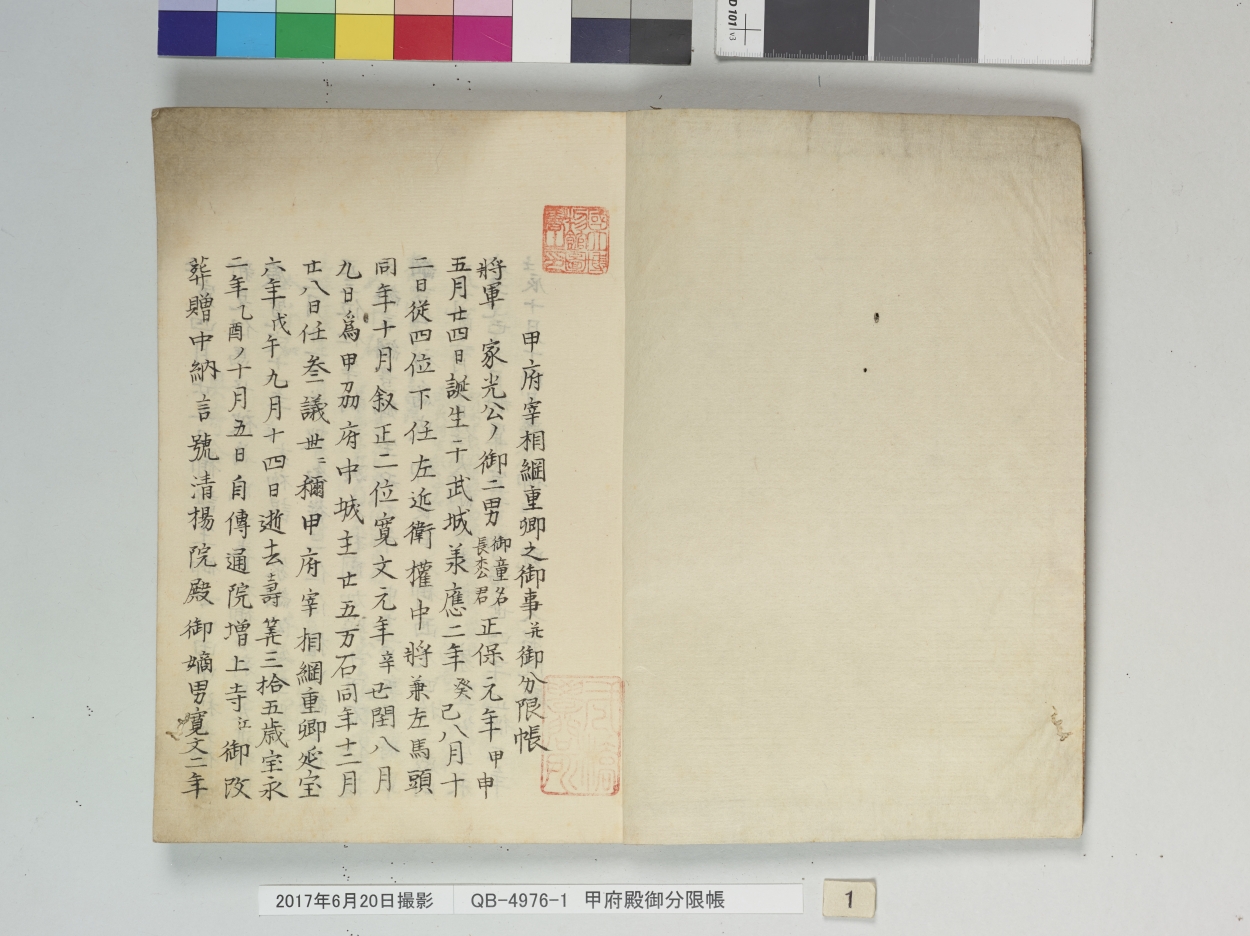 甲府宰相綱重卿之御事并御分限帳
將軍　家光公ノ御二男御童名長松君正保元年甲申
五月廿四日誕生于武城羕應二年癸巳八月十
二日從四位下任左近衛權中將兼左馬頭
同年十月叙正二位寛文元年辛丑閏八月
九日爲甲刕府中城主廿五万石同年十二月
廿八日任参議世ニ稱甲府宰相綱重卿延宝
六年戊午九月十四日逝去壽筭三拾五歳宝永
二年乙酉ノ十月五日自傳通院増上寺江御改
葬贈中納言號清揚院殿御嫡男寛文二年
國立博物館圖書之印
2017年6月20日撮影　QB-4976-1　甲府殿御分限帳
1
D 101 v3